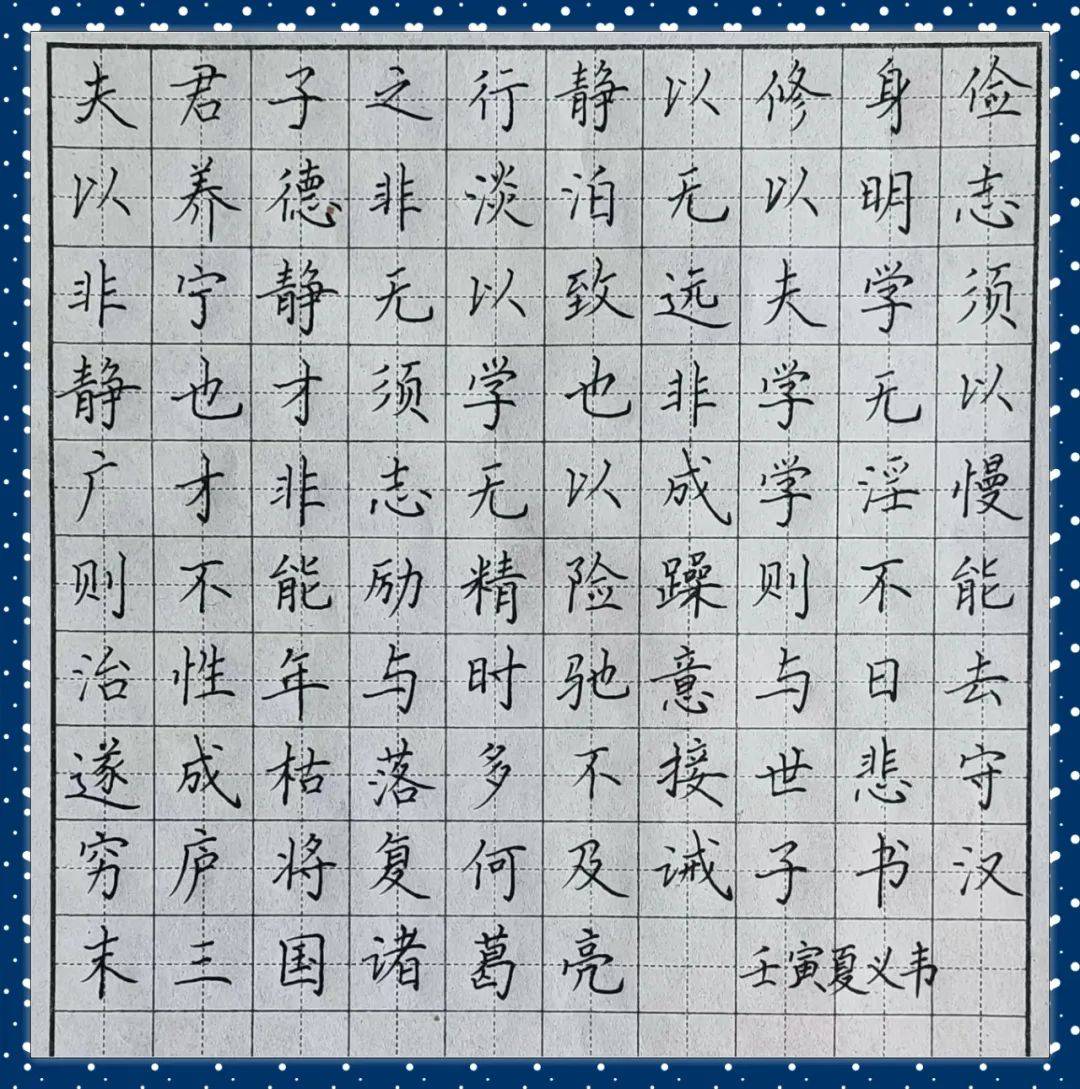 夫君子之行静以修身俭
以养德非淡泊无以明志
非宁静无以致远夫学须
静也才须学也非学无以
广才非志无以成学淫慢
则不能励精险躁则不能
治性年与时驰意与日去
遂成枯落多不接世悲守
穷庐将复何及诫子书汉
末三国诸葛亮 壬寅夏义韦